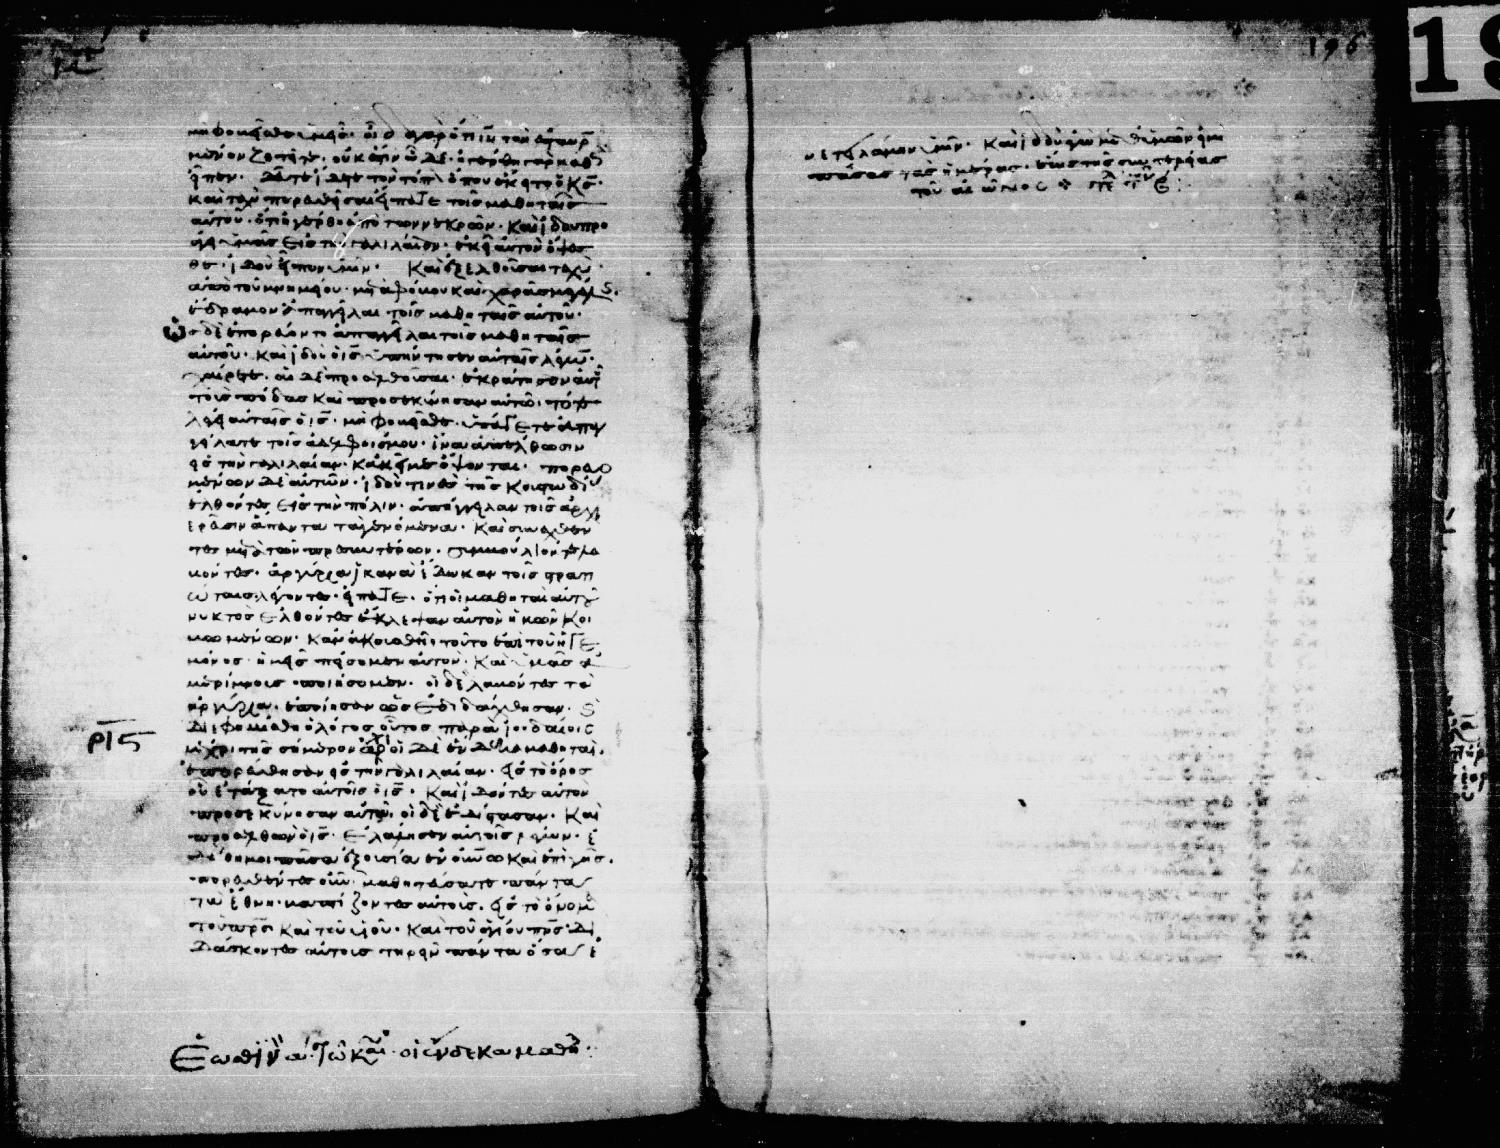 μὴ φοβεῖσθε ὑμεῖς· οἶδα γὰρ ὅτι ιν τὸν ἐσταυρ
μένον ζητεῖτε. οὐκ ἔστιν ὧδε· ἠγέρθη γὰρ καθὼς
εἶπεν. δεῦτε ἴδετε τὸν τόπον ὅπου ἔκειτο ὁ κς·
καὶ ταχὺ πορευθεῖσαι εἴπατε τοῖς μαθηταῖς
αὐτοῦ· ὅτι ἠγέρθη ἀπὸ τῶν νεκρῶν. καὶ ἰδοὺ προ
άγει ὑμᾶς εἰς τὴν γαλιλαίαν· ἐκεῖ αὐτὸν ὄψεσ
θε· ἰδοὺ εἶπον ὑμῖν· καὶ ἐξελθοῦσαι ταχὺ
ἀπὸ τοῦ μνημείου· μετὰ φόβου καὶ χαρᾶς μεγάλης.
ἔδραμον ἀπαγγεῖλαι τοῖς μαθηταῖς αὐτοῦ·
ὡς δὲ ἐπορεύοντο ἀπαγγεῖλαι τοῖς μαθηταῖς
αὐτοῦ· καὶ ἰδοὺ ὁ ις ὑπήντησεν αὐταῖς λέγων·
χαίρετε. αἱ δὲ προσελθοῦσαι· ἐκράτησαν αὐτοῦ
τοὺς πόδας καὶ προσεκύνησαν αὐτῷ. τότε
λέγει αὐταῖς ὁ ις· μὴ φοβεῖσθε· ὑπάγετε ἀπαγ
γείλατε τοῖς ἀδελφοῖς μου· ἵνα ἀπέλθωσιν
εἰς τὴν γαλιλαίαν· κἀκεῖ με ὄψονται. πορευο
μένων δὲ αὐτῶν· ἰδού τινες τῆς κουστωδί
ἐλθόντες εἰς τὴν πόλιν· ἀπήγγειλαν τοῖς ἀρχι
ερεῦσιν ἅπαντα τὰ γενόμενα. καὶ συναχθέν
τες μετὰ τῶν πρεσβυτέρων. συμβούλιόν τε λα
βόντες· ἀργύρια ἱκανὰ ἔδωκαν τοῖς στρατι
ώταις λέγοντες· εἴπατε· ὅτι οἱ μαθηταὶ αὐτοῦ
νυκτὸς ἐλθόντες ἔκλεψαν αὐτὸν ἡμῶν κοι
μωμένων. καὶ ἐὰν ἀκουσθῇ τοῦτο ἐπὶ τοῦ ἡγε
μόνος· ἡμεῖς πείσομεν αὐτὸν· καὶ ὑμᾶς ἀ
μερίμνους ποιήσομεν. οἱ δὲ λαβόντες τὰ
ἀργύρια. ἐποίησαν ὡς ἐδιδάχθησαν·
διεφημίσθη ὁ λόγος οὗτος παρὰ ἰουδαίοις
μέχρι τῆς σήμερον· οἱ δὲ ἕνδεκα μαθηταὶ.
ἐπορεύθησαν εἰς τὴν γαλιλαίαν. εἰς τὸ ὄρος
οὗ ἐτάξατο αὐτοῖς ὁ ις. καὶ ἰδόντες αὐτὸν
προσεκύνησαν αὐτῷ. οἱ δὲ ἐδίστασαν. καὶ
προσελθὼν ὁ ις· ἐλάλησεν αὐτοῖς λέγων· ἐ
δόθη μοι πᾶσα ἐξουσία ἐν οὐνῶ καὶ ἐπὶ γῆς.
πορευθέντες οὖν μαθητεύσατε πάντα
τὰ ἔθνη· βαπτίζοντες αὐτοὺς. εἰς τὸ ὄνομα
τοῦ πρς καὶ τοῦ υἱοῦ· καὶ τοῦ ἁγίου πνς· δι
δάσκοντες αὐτοὺς τηρεῖν πάντα ὅσα ἐ
ρις
Ἑωθινὸν α τῷ καιρῷ οἱ ἕνδεκα μαθη
196
νετειλάμην ὑμῖν. καὶ ἰδοὺ ἐγὼ μεθ' ὑμῶν εἰμι
πάσας τὰς ἡμέρας. ἕως τῆς συντελείας
τοῦ αἰῶνος